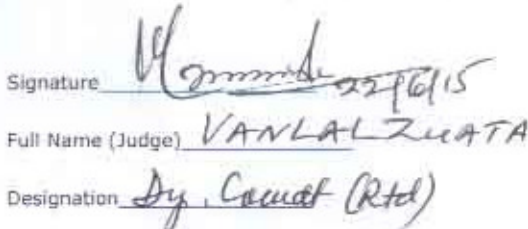 Signature 22/6/15
Full Name (Judge) VANLALZUATA
Designation Dy. Comdt (Rtd)